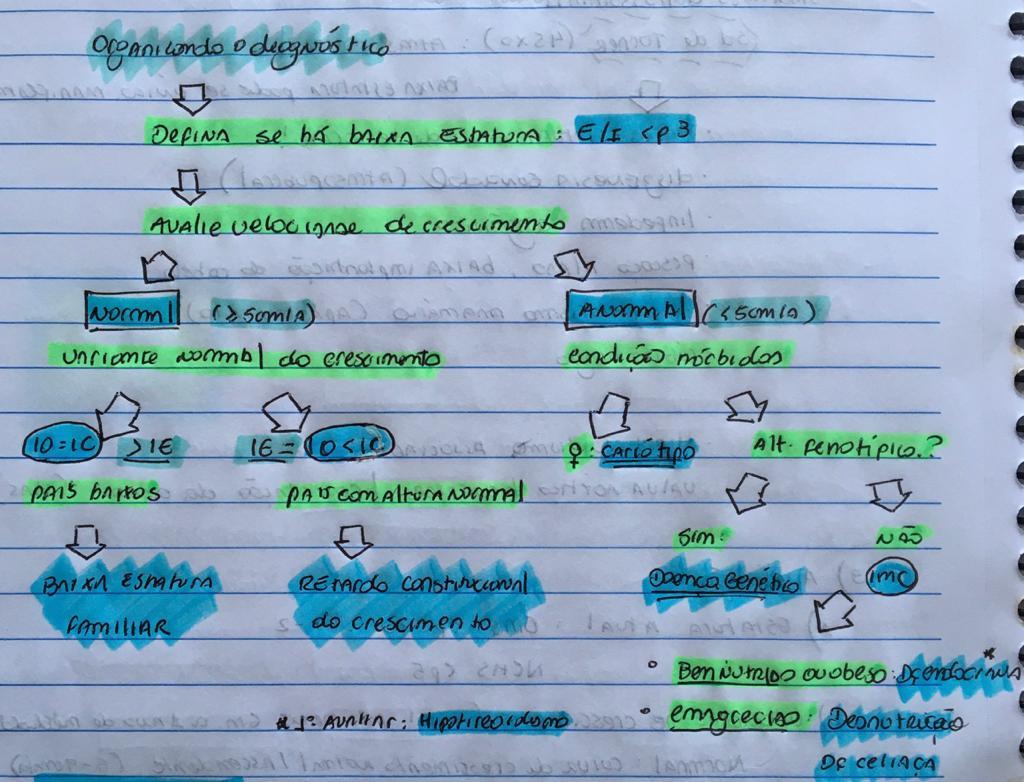 Organizando o diagnóstico
DEFINA SE HÁ BAIXA ESTATURA: E/I <p3
AVALIE VELOCIDADE DE CRESCIMENTO
NORMAL (≥5cm/A) ANORMAL (<5cm/A)
VARIANTE NORMAL DO CRESCIMENTO CONDIÇÃO MÓRBIDAS
IO=IC >IE IE = IO<IC ♀: CARIÓTIPO Alt. FENOTÍPICO?
PAIS BAIXOS PAIS COM ALTURA NORMAL
SIM: NÃO
BAIXA ESTATURA RETARDO CONSTITUCIONAL DOENÇA GENÉTICA IMC
FAMILIAR DO CRESCIMENTO
• BEM NUTRIDO OU OBESO: DÇ ENDÓCRINA*
* 1º AVALIAR: HIPOTIREOIDISMO • EMAGRECIDO: DESNUTRIÇÃO
DÇ CELÍACA